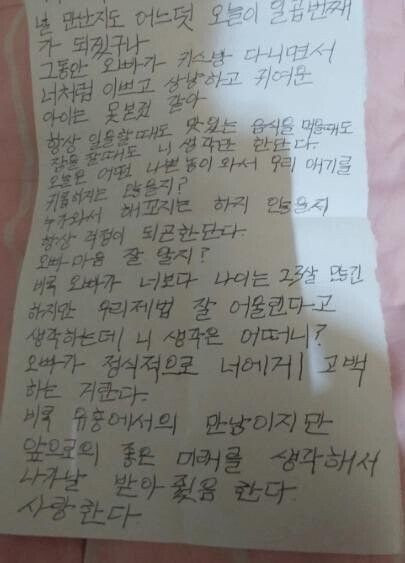 널 만난지도 어느덧 오늘이 일곱번째
가 되겠구나
그동안 오빠가 키스방 다니면서
너처럼 이쁘고 상냥하고 귀여운
아이는 못본것 같아
항상 일을할때도 맛있는 음식을 먹을때도
잠을 잘때도 니 생각만 한단다.
오늘은 어떤 나쁜놈이 와서 우리 애기를
괴롭히지는 않을지?
누가와서 해꼬지는 하지 않을지
항상 걱정이 되곤한단다.
오빠마음 잘 알지?
비록 오빠가 너보다 나이는 23살 많긴
하지만 우리제법 잘 어울린다고
생각하는데 니 생각은 어떠니?
오빠가 정식적으로 너에게 고백
하는 거란다.
비록 유흥에서의 만남이지만
앞으로의 좋은 미래를 생각해서
나가날 받아줬음 한다.
사랑한다.